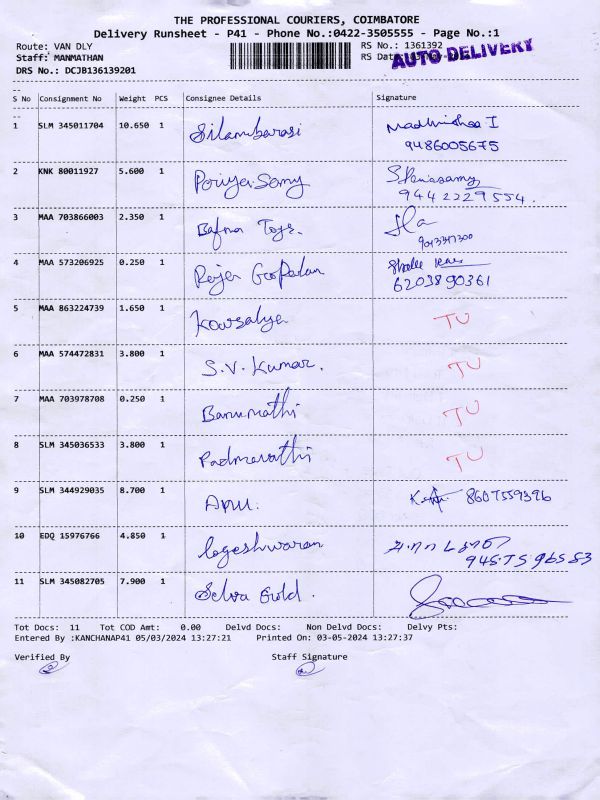 THE PROFESSIONAL COURIERS, COIMBATORE
Delivery Runsheet - P41 - Phone No.:0422-3505555 - Page No.:1
Route: VAN DLY RS No.: 1361392
Staff: MANMATHAN RS Date: AUTO DELIVERY
DRS No.: DCJB136139201
S No Consignment No Weight PCS Consignee Details Signature
1 SLM 345011704 10.650 1 Silambarasi
9486005675
2 KNK 80011927 5.600 1 Poriya Samy
9442229554.
3 MAA 703866003 2.350 1 Bafna Toys.
4 MAA 573206925 0.250 1 Raja Gopalan
6203890361
5 MAA 863224739 1.650 1 Kowsalya TU
6 MAA 574472831 3.800 1 S.V. Kumar. TU
7 MAA 703978708 0.250 1 Banumathi TU
8 SLM 345036533 3.800 1 Padmavathi TU
9 SLM 344929035 8.700 1 Apu. 8607559396
10 EDQ 15976766 4.850 1 logeshwaran
945.75.96553
11 SLM 345082705 7.900 1 Selva Gold.
Tot Docs: 11 Tot COD Amt: 0.00 Delvd Docs: Non Delvd Docs: Delvy Pts:
Entered By :KANCHANAP41 05/03/2024 13:27:21 Printed On: 03-05-2024 13:27:37
Verified By Staff Signature